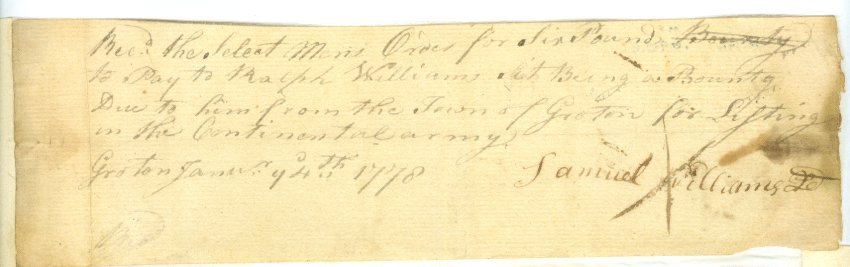 Rec.d the Select Mens Order for Six Pounds Bounty
to Pay to Ralph Williams it Being a Bounty
Due to him from the Town of Groton for Lifting
in the Continental army
Groton Janu.r y.d 4th 1778
Samuel Williams
Rec.d